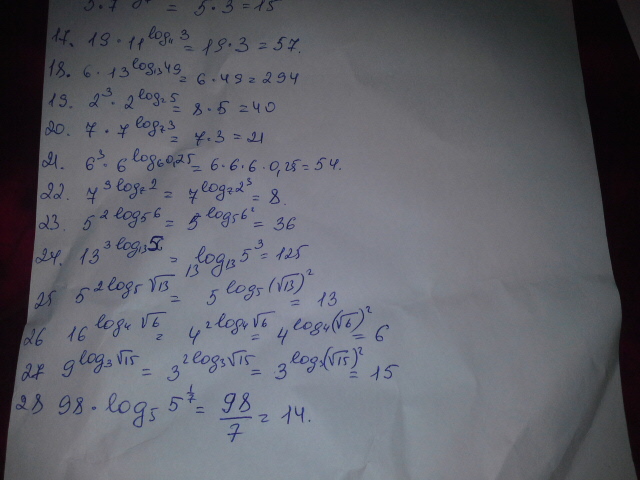 5·7 = 5·3=15
17. 19·11^log₁₁3 = 19·3=57.
18. 6·13^log₁₃49 = 6·49=294
19. 2³·2^log₂5 = 8·5=40
20. 7·7^log₇3 = 7·3=21
21. 6³·6^log₆0,25 = 6·6·6·0,25=54.
22. 7^3log₇2 = 7^log₇2³ = 8.
23. 5^2log₅6 = 5^log₅6² = 36
24. 13^3log₁₃5 = 13^log₁₃5³ = 125
25 5^2log₅√13 = 5^log₅(√13)² = 13
26 16^log₄√6 = 4^2log₄√6 = 4^log₄(√6)² = 6
27 9^log₃√15 = 3^2log₃√15 = 3^log₃(√15)² = 15
28 98·log₅5^1/7 = 98/7 = 14.